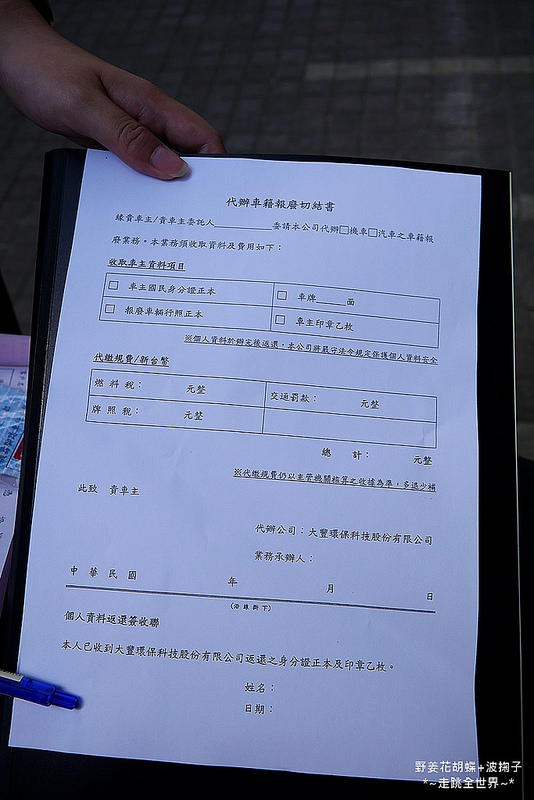 代辦車籍報廢切結書
緣貴車主/貴車主委託人__________委請本公司代辦□機車□汽車之車籍報
廢業務，本業務須收取資料及費用如下：
收取車主資料項目
□ 車主國民身分證正本 □ 車牌_____面
□ 報廢車輛行照正本 □ 車主印章乙枚
※個人資料於辦完後返還，本公司將嚴守法令規定保護個人資料安全
代繳規費/新台幣
燃料稅： 元整 交通罰款： 元整
牌照稅： 元整
總 計： 元整
※代繳規費仍以主管機關核算之收據為準，多退少補
此致 貴車主
代辦公司：大豐環保科技股份有限公司
業務承辦人：
中 華 民 國 年 月 日
(沿線剪下)
個人資料返還簽收聯
本人已收到大豐環保科技股份有限公司返還之身分證正本及印章乙枚。
姓名：
日期：
野姜花胡蝶+波掬子
*~走跳全世界~*